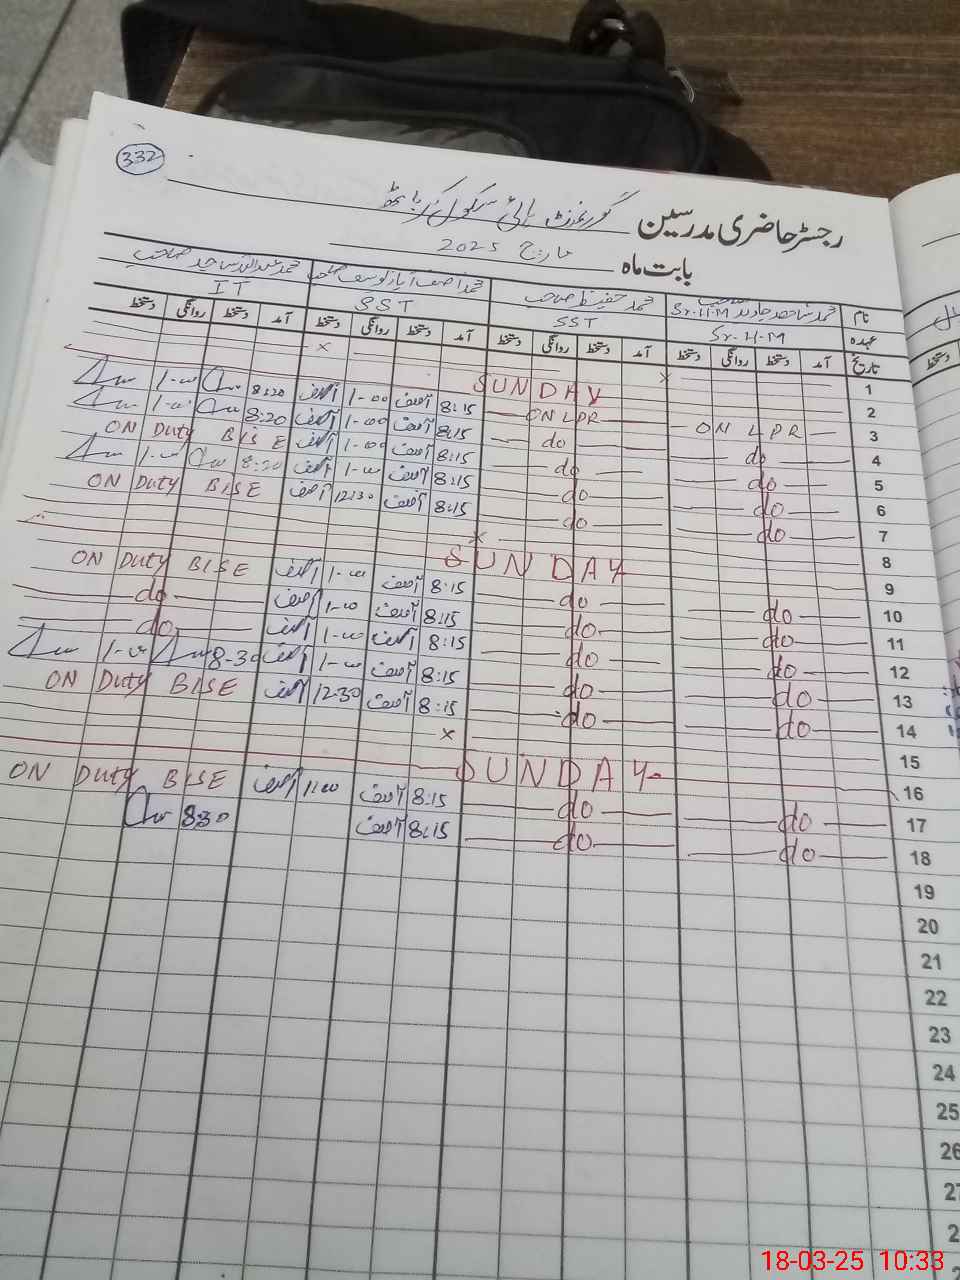 332
رجسٹر حاضری مدرسین گورنمنٹ ہائی سکول
بابت ماہ مارچ 2025
نام محمد شاہد جاوید صاحب Sr.H.M محمد حفیظ صاحب محمد آصف ایاز یوسف صاحب محمد عبداللہ ساجد صاحب
عہدہ Sr.H.M SST SST IT
تاریخ آمد دستخط روانگی دستخط آمد دستخط روانگی دستخط آمد دستخط روانگی دستخط آمد دستخط روانگی دستخط
1 × ×
2 SUNDAY
3 ON LPR ON LPR 8:15 آصف 1-00 آصف 8:20 1-00
4 do do 8:15 آصف 1-00 آصف 8:20 1-00
5 do do 8:15 آصف 1-00 آصف ON Duty BISE
6 do do 8:15 آصف 1-00 آصف 8:20 1-00
7 do do 8:15 آصف 12:30 آصف ON Duty BISE
8 ×
9 SUNDAY
10 do do 8:15 آصف 1-00 آصف ON Duty BISE
11 do do 8:15 آصف 1-00 آصف do
12 do do 8:15 آصف 1-00 آصف do
13 do do 8:15 آصف 1-00 آصف 8-30 1-00
14 do do 8:15 آصف 12:30 آصف ON Duty BISE
15 ×
16 SUNDAY
17 do do 8:15 آصف 11:00 آصف ON Duty BISE
18 do do 8:15 آصف 8:30
19
20
21
22
23
24
25
26
27
18-03-25 10:33